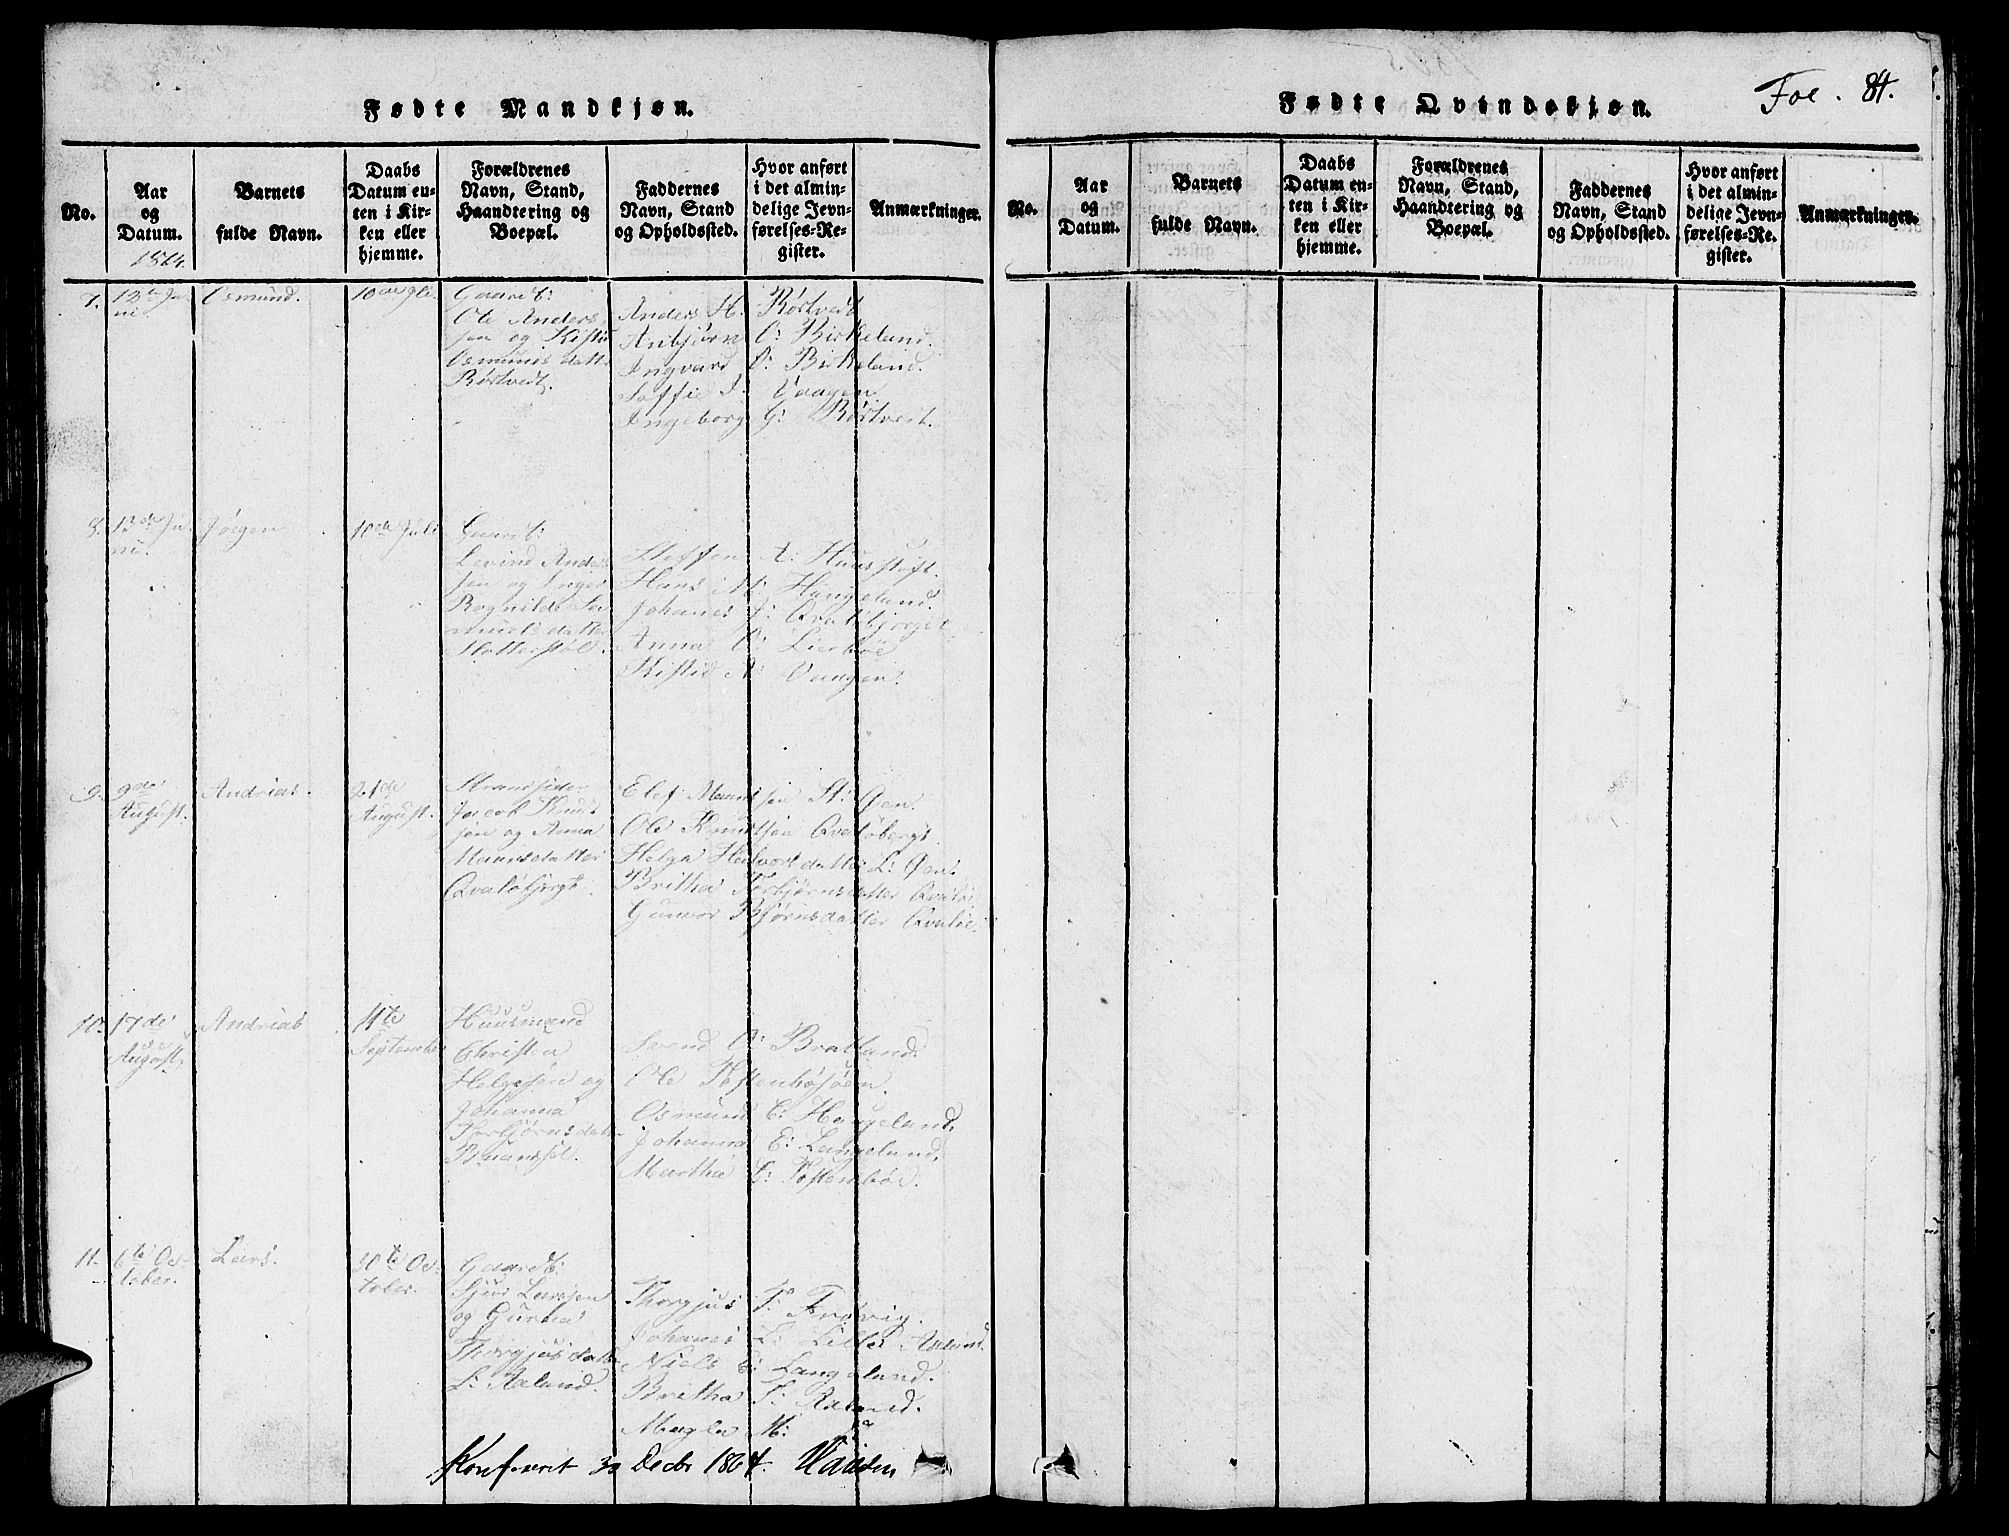 Fødte Mandkjøn.
No.
Aar og Datum.
Barnets fulde Navn.
Daabs Datum enten i Kirken eller hjemme.
Forældrenes Navn, Stand, Haandtering og Boepæl.
Faddernes Navn, Stand og Opholdssted.
Hvor anført i det almindelige Jevnførelses-Register.
Anmærkninger.
1864.
7. 13de Juni
Osmund.
10de Juli
Gaardb:
Ole Anders
sen og Kistie
Osmunds datter
Røstvedt.
Anders H: Røstvedt
Anbjørn O: Birkeland.
Ingvard O: Birkeland.
Soffie I: Vaagen
Ingeborg G: Røstvedt.
8. 13de Juni.
Jørgen
10de Juli
Gaardb:
Levind Anders
sen og Inger
Rognilde Sa
muelsdatter
Steffen A: Huusstøft.
Hans M: Haugeland.
Johanes I: Qvaløbjerget
Anna O: Lierbøe
Kistie A: Vaagen.
9. 9de August.
Andrias.
21de August.
Strandsider
Jacob Knud
sen og Anna
Maansdatter
Qvaløbjergt.
Elef Maansen St: Øen.
Ole Knudsen Qvaløbergt
Helga Halvorsdatter L: Øen:
Britha Torbjørnsdatter Qvaløe
Gunvor Bjørnsdatter Qvaløe.
10. 17de August.
Andrias
11te September
Huusmand
Christen
Helgesen og
Johanna
Torbjørnsdatter
Svend O: Bratland.
Ole Tostenbøsøen.
Osmund C: Haugeland.
Johanna E: Langeland.
Martha L: Tostenbøe.
11. 6te October.
Lars.
30te October.
Gaardb:
Sjur Larssen
og Gurina
Thorgjusdatter
L: Aaland.
Thorgjus T: Frøvig.
Johanes L: Lille Aaland.
Niels E: Langeland.
Britha T: Aaland.
Magla M:
Konfereret 30 Decbr 1864.
Fødte Qvindekjøn.
Fol. 84.
No.
Aar og Datum.
Barnets fulde Navn.
Daabs Datum enten i Kirken eller hjemme.
Forældrenes Navn, Stand, Haandtering og Boepæl.
Faddernes Navn, Stand og Opholdssted.
Hvor anført i det almindelige Jevnførelses-Register.
Anmærkninger.